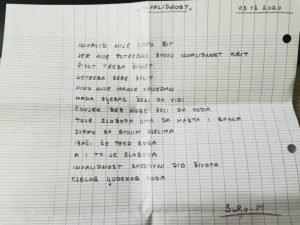 "INVALIDNOST"
03.12.2020
INVALID NIJE LAKO BIT
JER NIJE POTREBNO SVOJU INVALIDNOST KRIT
ŽIVOT TREBA ŽIVET
NETREBA SEBE ŽALIT
NIKO NIJE MANJE VRIJEDAN
MADA SLJEPAC ŽELI DA VIDI
ČOVJEK BEZ NOGE ŽELI DA HODA
TO JE SLOBODA UMA DA MAŠTA I SANJA
SVAKO SA SVOJIM DJELIMA
IZAĆI ĆE PRED BOGA
A I TO JE SLOBODA
INVALIDNOST SASTAVNI DIO ŽIVOTA
CJELOG LJUDSKOG RODA